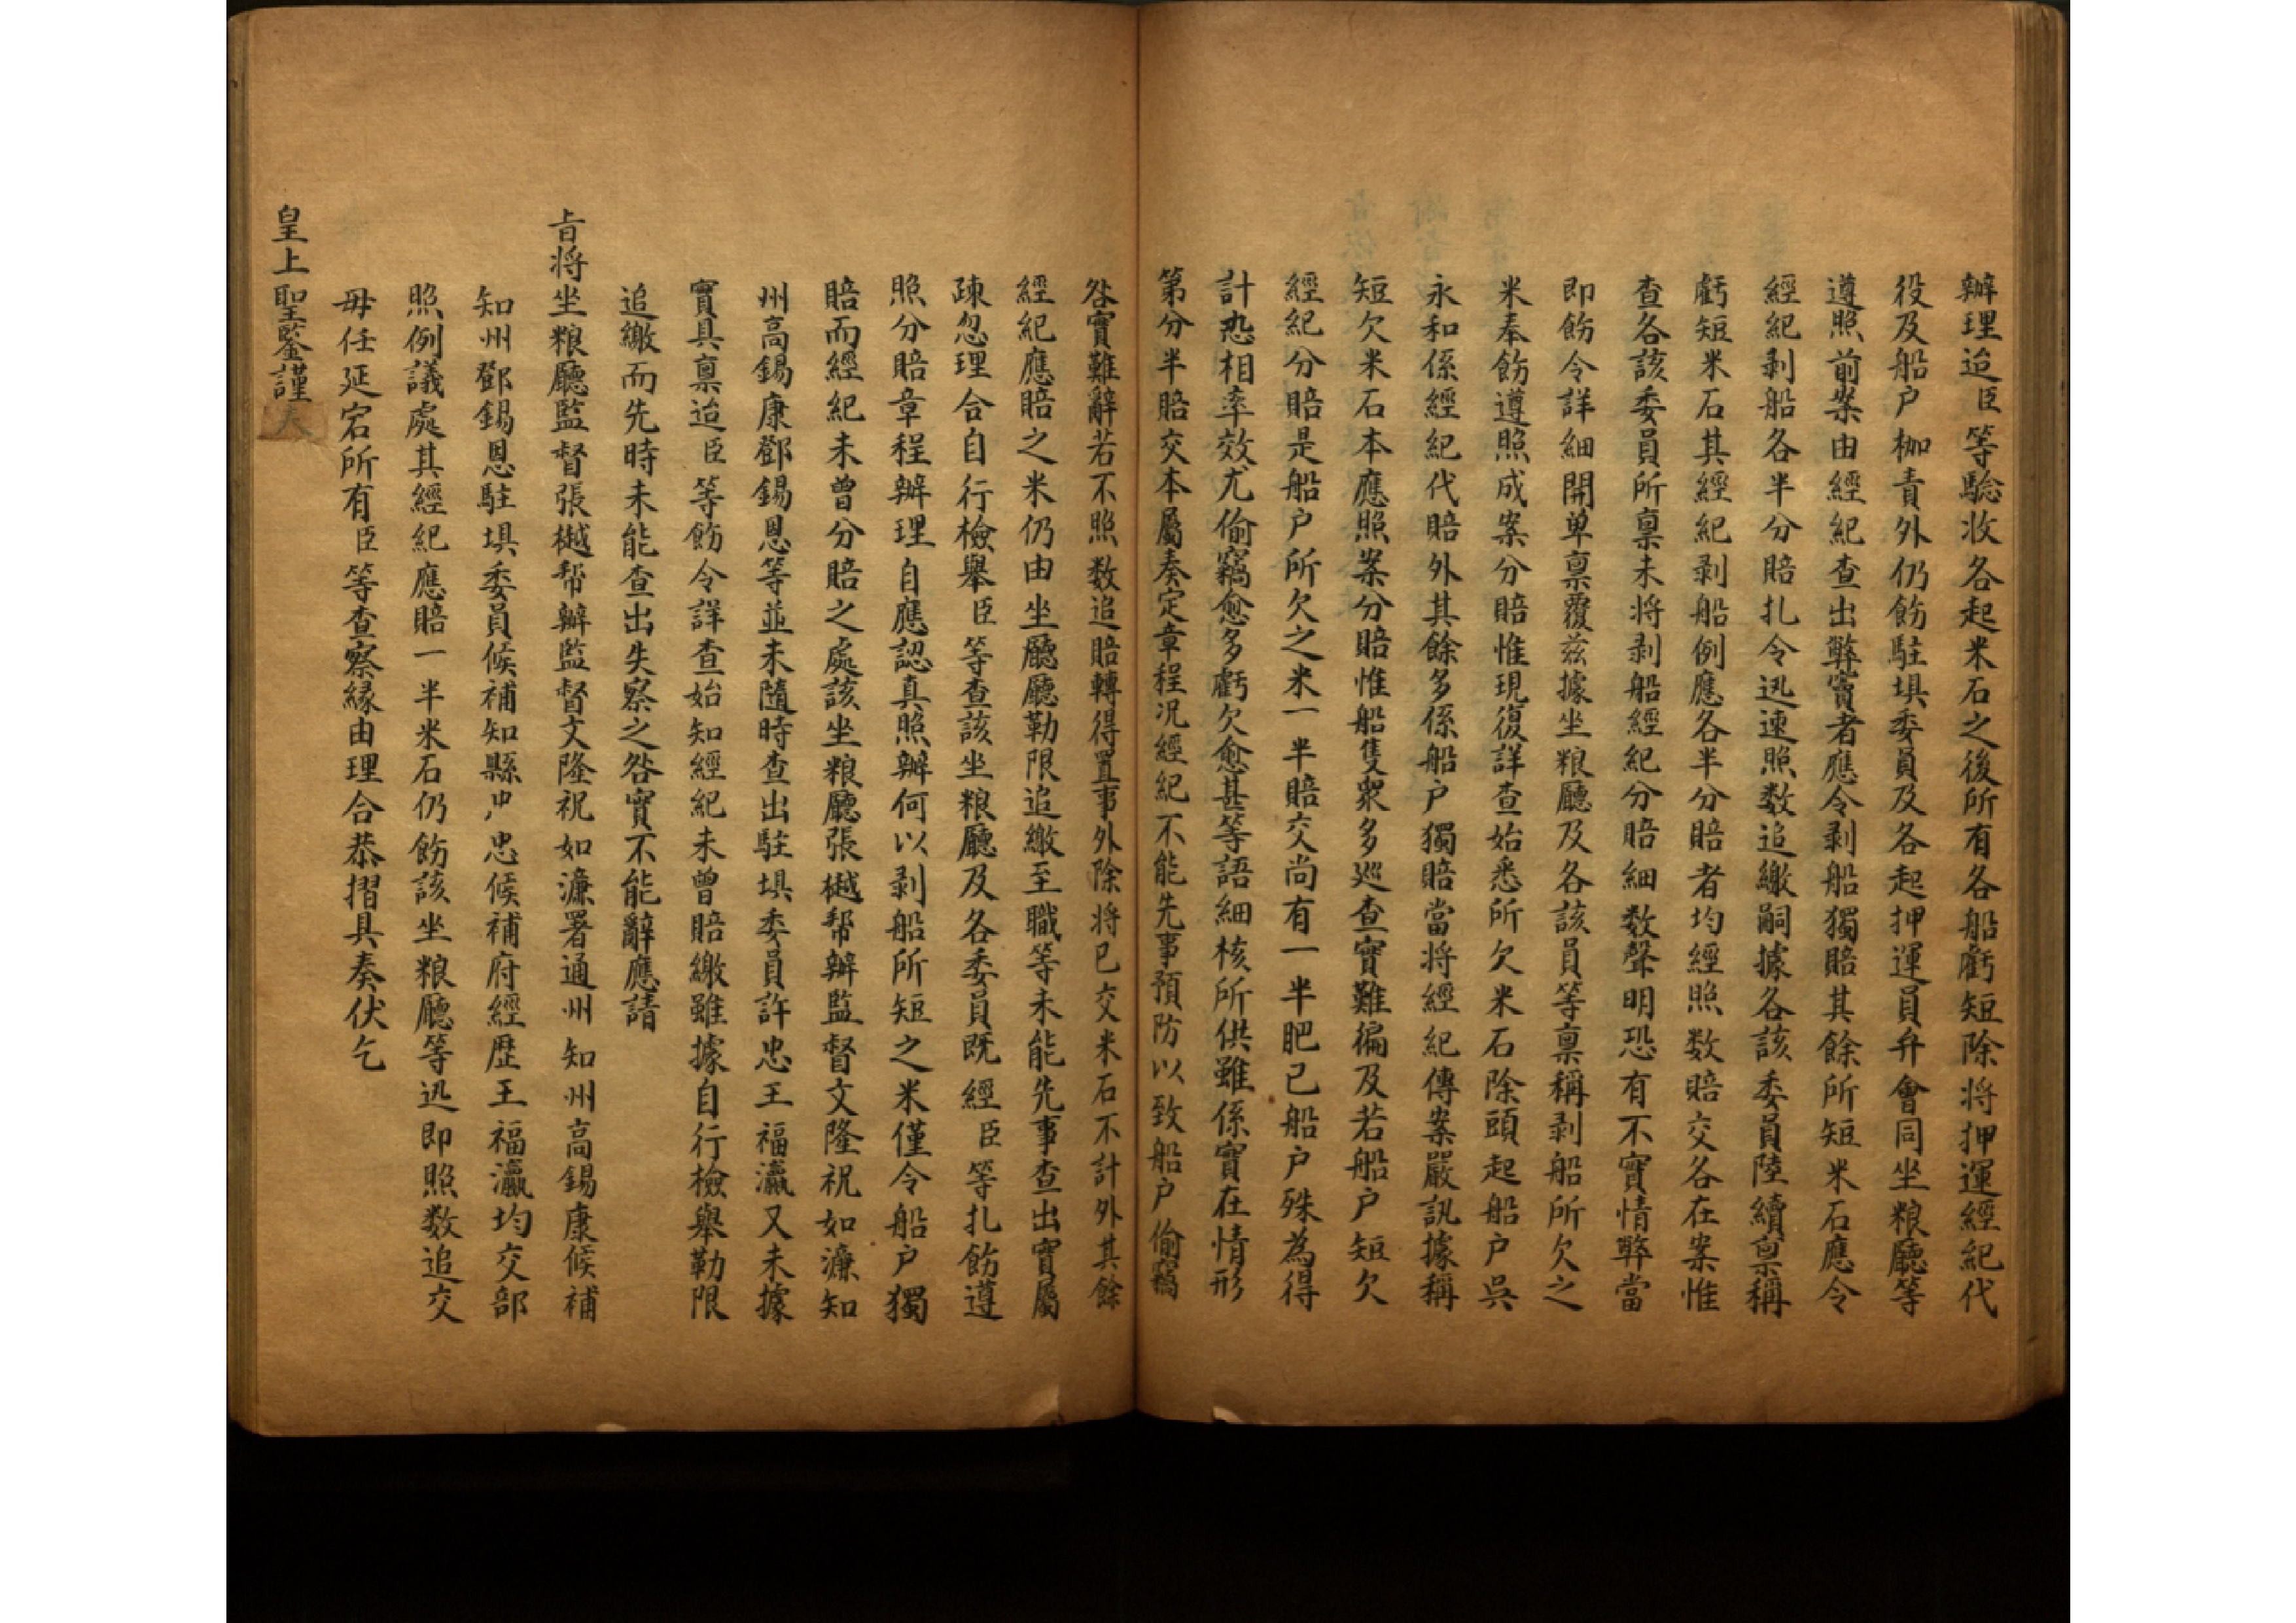 辦理迨臣等騐收各起米石之後所有各船虧短除将押運經紀代
役及船户枷責外仍飭駐垻委員及各起押運員弁會同坐粮廳等
遵照前案由經紀查出弊竇者應令剥船獨賠其餘所短米石應令
經紀剥船各半分賠扎令迅速照数追繳嗣據各該委員陸續禀稱
虧短米石其經紀剥船例應各半分賠者均經照数賠交各在案惟
查各該委員所禀未将剥船經紀分賠細数聲明恐有不實情弊當
即飭令詳細開单禀覆兹據坐粮廳及各該員等禀稱剥船所欠之
米奉飭遵照成案分賠惟現復詳查始悉所欠米石除頭起船户吳
永和係經紀代賠外其餘多係船户獨賠當将經紀傳案嚴訊據稱
短欠米石本應照案分賠惟船隻衆多巡查實難徧及若船户短欠
經紀分賠是船户所欠之米一半賠交尚有一半肥已船户殊為得
計恐相率效尤偷竊愈多虧欠愈甚等語細核所供雖係實在情形
第分半賠交本屬奏定章程况經紀不能先事預防以致船户偷竊
咎實難辭若不照数追賠轉得置事外除将已交米石不計外其餘
經紀應賠之米仍由坐廳廳勒限追繳至職等未能先事查出實屬
疎忽理合自行檢舉臣等查該坐粮廳及各委員既經臣等扎飭遵
照分賠章程辦理自應認真照辦何以剥船所短之米僅令船户獨
賠而經紀未曾分賠之處該坐粮廳張樾帮辦監督文隆祝如濂知
州高錫康鄧錫恩等並未隨時查出駐垻委員許忠王福瀛又未據
實具禀迨臣等飭令詳查始知經紀未曾賠繳雖據自行檢舉勒限
追繳而先時未能查出失察之咎實不能辭應請
旨将坐粮廳監督張樾帮辦監督文隆祝如濂署通州知州高錫康候補
知州鄧錫恩駐垻委員候補知縣忠候補府經歴王福瀛均交部
照例議處其經紀應賠一半米石仍飭該坐粮廳等迅即照数追交
毋任延宕所有臣等查察縁由理合恭摺具奏伏乞
皇上聖鑒謹